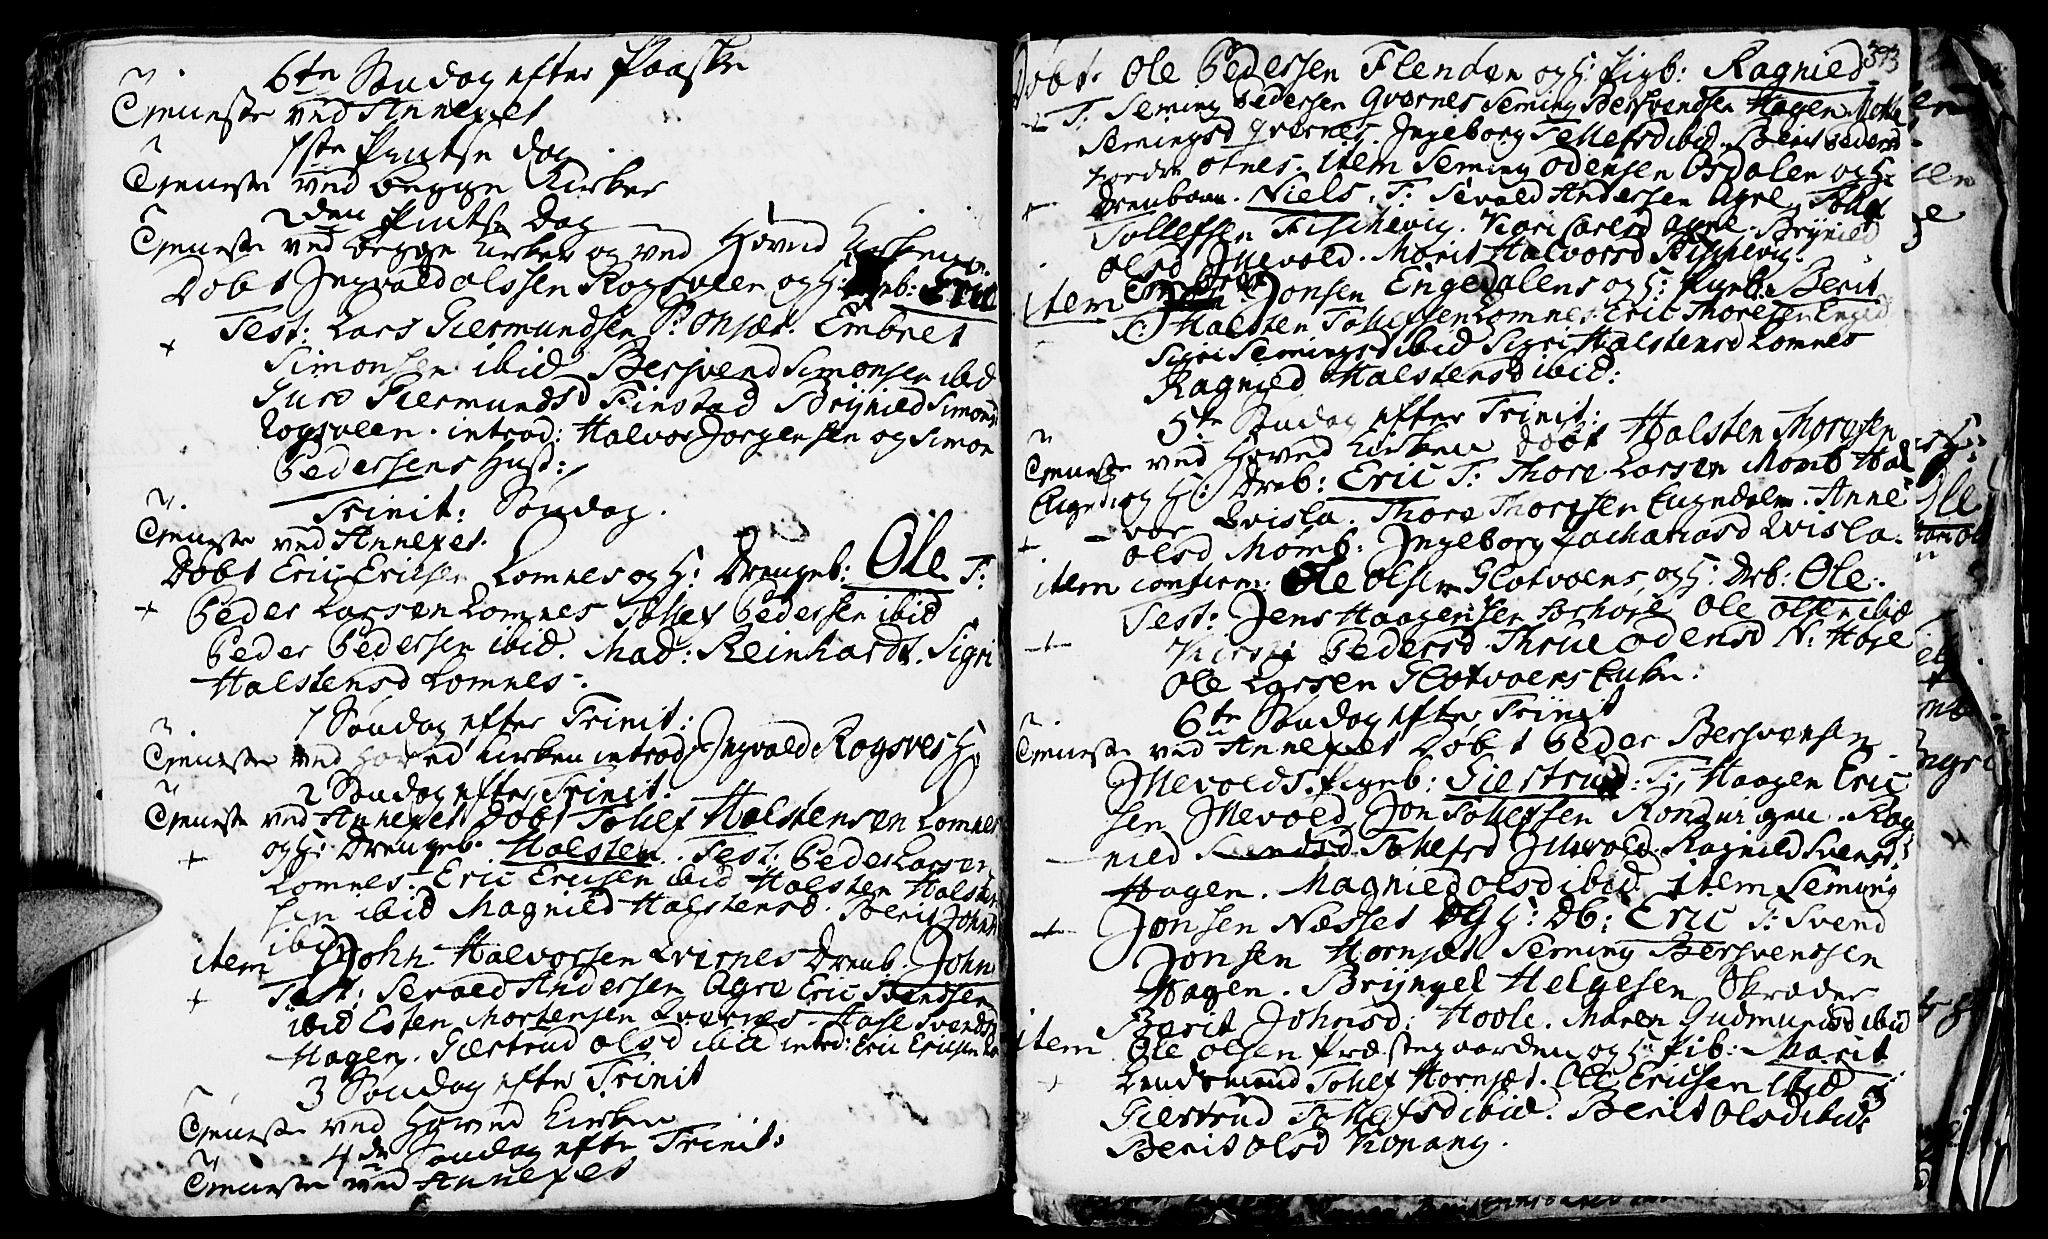 6te Søndag efter Paaske
Tieneste ved Annexet
1ste Pintse dag
Tieneste ved begge Kirker
2den Pintse Dag
Tieneste ved begge Kirker og ved Hoved Kirken
Døbt Ingvald Olssen Rogsveen og H: b: Eric
Test: Lars Giermundsen Embret
Simonsen ibid Bersvend Simonsen ibid
Guro Giermundsd Finstad Brynild Simonsd
Rogsveen. introd: Halvor Jorgensen og Simon
Pedersens Hust:
Trinit: Søndag.
Tieneste ved Annexet.
Døbt Eric Ericsen Lomnes og H: Drengeb: Ole T:
+ Peder Larsen Lomnes Tollef Pedersen ibid
Peder Pedersen ibid. Mad: Reinhardt. Sigri
Halstensd Lomnes.
1 Søndag efter Trinit:
Tieneste ved Hoved Kirken introd: Ingvald Rogsves H:
2 Søndag efter Trinit:
Tieneste ved Annexet Døbt Tollef Halstensen Lomnes
og H: Drengeb. Halsten. Test: Peder Larsen
+ Lomnes. Eric Ericsen ibid Halsten Halsten
sen ibid Magnild Halstensd. Berit Johnsd
ibid
item John Halvorsen Qvernes Drenb. John
+ Test: Sevald Andersen Agre Eric Svendsen
ibid Esten Mortensen Qvernes. Aase Svendsd
Hagen. Giertrud Olsd ibid introd: Eric Ericsen Lo
3 Søndag efter Trinit
Tieneste ved Hoved Kirken
4de Søndag efter Trinit:
Tieneste ved Annexet
393
Døbt Ole Pedersen Flenden og H: Pigb: Ragnild
+ T: Seming Pedersen Qvernes Seming Bersvendsen Hagen
Semingsd Qvernes. Ingeborg Tollefsd ibid. Berit Pedersd
Otnes. item Seming Odensen Osdalen og H:
+ Drenbarn. Niels. T: Sevald Andersen Agre. Tollef
Tollefsen Fischevig. Kari Carlsd Agre. Brynild
Olsd Mevold. Marit Halvorsd Fischevig.
item Jonsen Engedalens og H: Pigeb: Berit
T: Halsten Tollefsen Lomnes Eric Thoresen Enged
Sigri Semingsd ibid Sigri Halstensd Lomnes
Ragnild Halstensd ibid:
5te Søndag efter Trinit:
Tieneste ved Hoved Kirken Døbt Halsten Thoresen
Enged: og H: Dreb: Eric T: Thore Larsen Momb Hal
+ vor Qvisla. Thore Thoresen Engedalen. Anne
Olsd Momb: Ingeborg Zachariasd Qvisla.
item confirm: Ole Olsen Glotvoens og H: Drb: Ole.
Test: Jens Haagensen Ole Olsen ibid
+ Pedersd Thrue Odensd N: Hore
Ole Larsen Glotvoens Enke.
6te Søndag efter Trinit
Tieneste ved Annexet Døbt Peder Bersvensen
Mevolds. Pigeb: Giertrud: T: Haagen Eric
sen Mevold Jon Tollefsen Rønningen. Rag
nild Tollefsd Mevold. Ragnild Svensd
Hagen. Magnild Olsd ibid. item Seming
+ Jonsen Næsset og H: Db: Eric T: Svend
Jonsen Hornset Seming Bersvendsen
Hagen. Bryngel Helgesen Skreder
Berit Johnsd: Hoole. Maren Gudmundsd ibid
item Ole Olsen Præstegaarden og H: Pib: Marit
+ Lensmand Tollef Hornset. Ole Ericsen ibid
Giertrud Tollefsd ibid. Berit Olsd ibid
Berit Olsd Kopang.